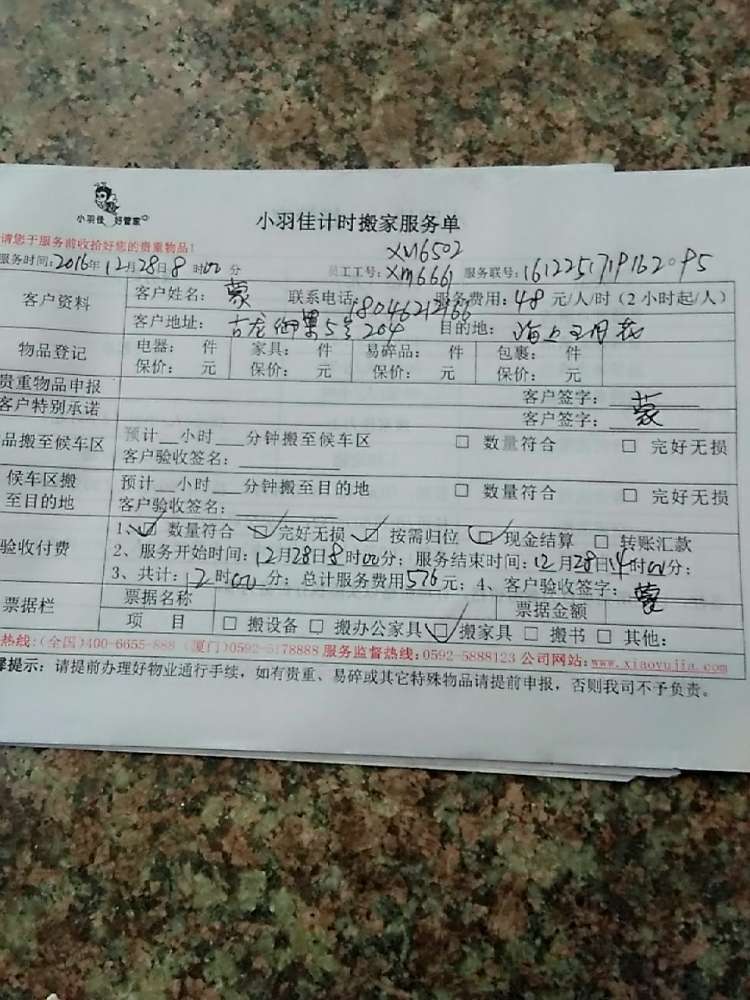 小羽佳 好管家
小羽佳计时搬家服务单
请您于服务前收拾好您的贵重物品!
服务时间:2016年12月28日8时00分 员工工号:XM6502 XM6661 服务联号:1612251719162095
客户资料 客户姓名:蒙 联系电话 18046212166 服务费用:48元/人/时(2小时起/人)
客户地址:古龙御景5号204 目的地:海上五月花
物品登记 电器: 件 家具: 件 易碎品: 件 包裹: 件
保价: 元 保价: 元 保价: 元 保价: 元
贵重物品申报 客户签字:
客户特别承诺 客户签字:蒙
品搬至候车区 预计__小时___分钟搬至候车区 □ 数量符合 □ 完好无损
客户验收签名:
候车区搬至目的地 预计__小时___分钟搬至目的地 □ 数量符合 □ 完好无损
客户验收签名:
验收付费 1、☑ 数量符合 ☑ 完好无损 ☑ 按需归位 ☑ 现金结算 □ 转账汇款
2、服务开始时间:12月28日8时00分;服务结束时间:12月28日14时00分;
3、共计:12时00分;总计服务费用576元;4、客户验收签字:蒙
票据栏 票据名称 票据金额
项 目 □ 搬设备 □ 搬办公家具 ☑ 搬家具 □ 搬书 □ 其他:
热线:(全国)400-6655-888 (厦门)0592-5178888 服务监督热线:0592-5888123 公司网站:www.xiaoyujia.com
馨提示:请提前办理好物业通行手续,如有贵重、易碎或其它特殊物品请提前申报,否则我司不予负责。